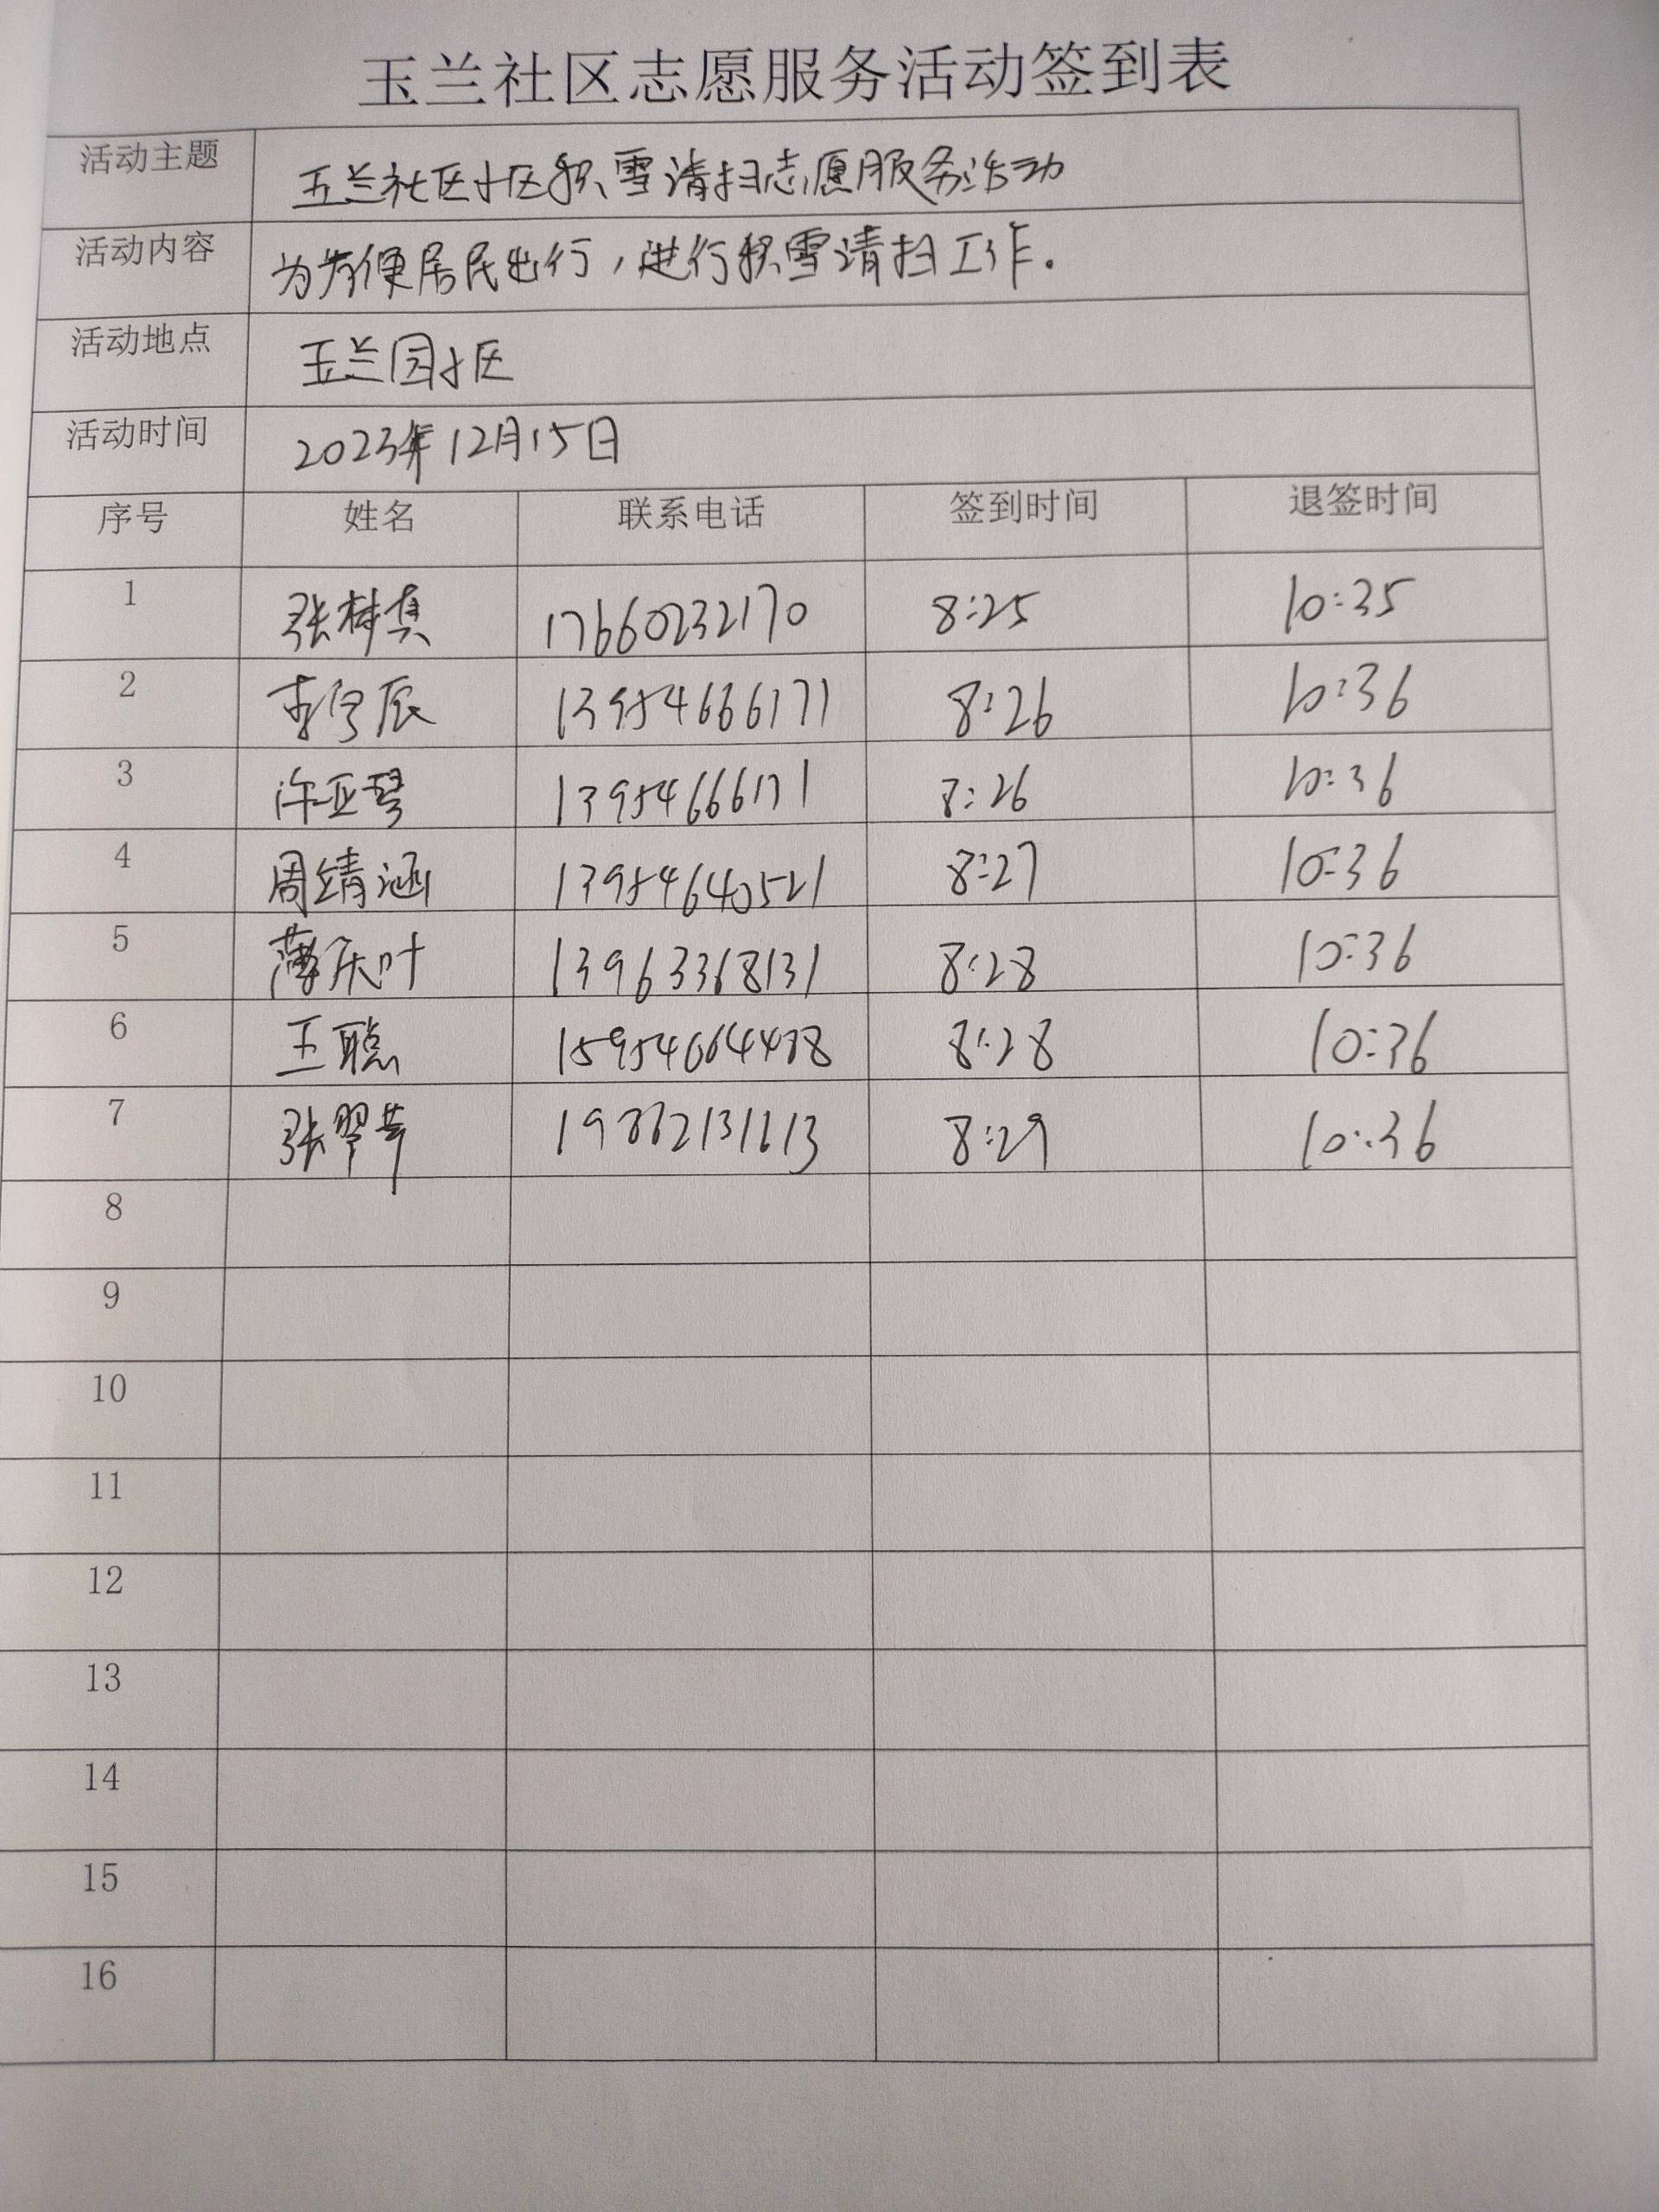 玉兰社区志愿服务活动签到表
活动主题 玉兰社区小区积雪清扫志愿服务活动
活动内容 为方便居民出行，进行积雪清扫工作.
活动地点 玉兰园小区
活动时间 2023年12月15日
序号 姓名 联系电话 签到时间 退签时间
1 张林真 17660232170 8:25 10:35
2 李宇辰 13954666171 8:26 10:36
3 许亚琴 13954666171 8:26 10:36
4 周靖涵 13954640521 8:27 10:36
5 薄庆叶 13963368131 8:28 10:36
6 王聪 8:28 10:36
7 8:29 10:36
8
9
10
11
12
13
14
15
16